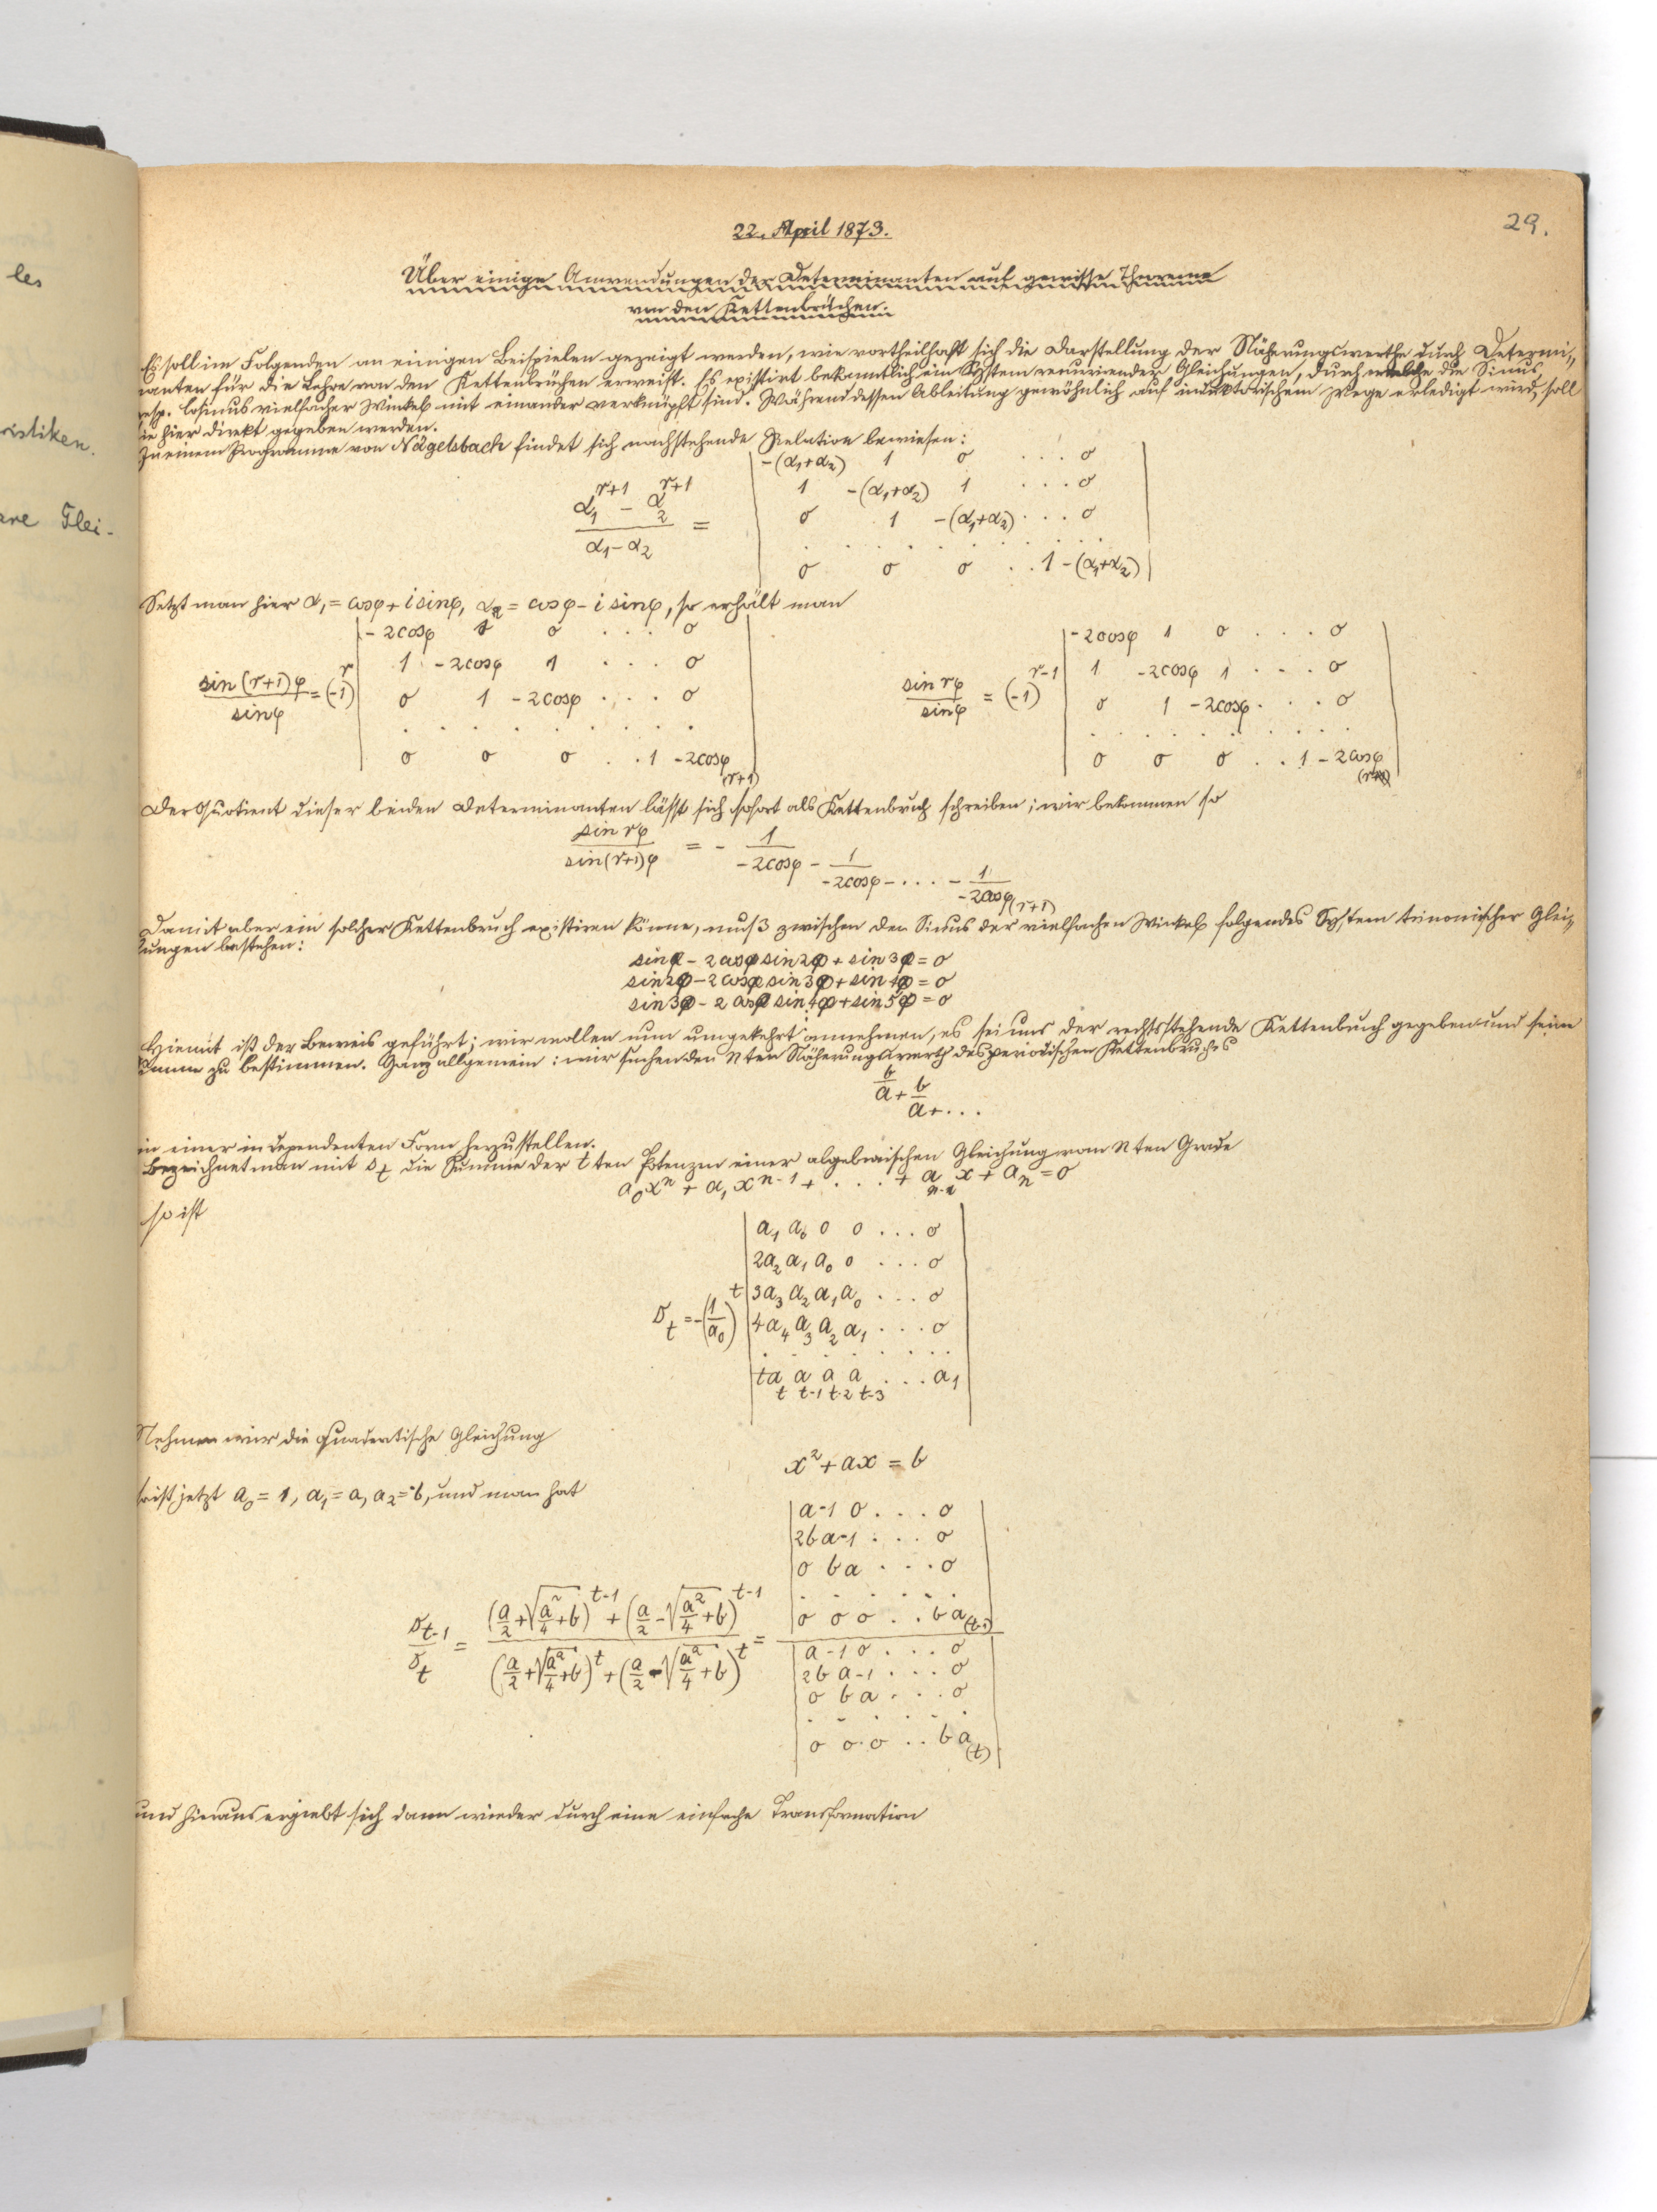 les
ristiken.
are Glei-
29.
22. April 1873.
Über einige Anwendungen der Determinanten auf gewisse Theoreme
von den Kettenbrüchen.
Es soll im Folgenden an einigen Beispielen gezeigt werden, wie vortheilhaft sich die Darstellung der Näherungswerthe durch Determi-
nanten für die Lehre von den Kettenbrüchen erweist. Es existirt bekanntlich ein System recurrirender Gleichungen, durch welche die Sinus
resp. Cosinus vielfacher Winkel mit einander verknüpft sind. Während dessen Ableitung gewöhnlich auf induktorischem Wege erledigt wird, soll
sie hier direkt gegeben werden.
In einem Programme von Nägelsbach findet sich nachstehende Relation bewiesen:
-(α₁+α₂) 1 0 . . . 0
1 -(α₁+α₂) 1 . . . 0
(α₁^{r+1} - α₂^{r+1})/(α₁-α₂) = 0 1 -(α₁+α₂) . . . 0
. . . . . . . .
0 0 0 . . 1 -(α₁+α₂)
Setzt man hier α₁ = cosφ + i sinφ, α₂ = cosφ - i sinφ, so erhält man
-2cosφ 1 0 . . . 0 -2cosφ 1 0 . . . 0
1 -2cosφ 1 . . . 0 1 -2cosφ 1 . . . 0
sin(r+1)φ/sinφ = (-1)^r 0 1 -2cosφ . . . 0 sin rφ/sinφ = (-1)^{r-1} 0 1 -2cosφ . . . 0
. . . . . . . . . . . . . . . .
0 0 0 . . 1 -2cosφ (r+1) 0 0 0 . . 1 -2cosφ
Der Quotient dieser beiden Determinanten lässt sich sofort als Kettenbruch schreiben; wir bekommen so
sin rφ/sin(r+1)φ = - 1/-2cosφ - 1/-2cosφ - . . . - 1/-2cosφ (r+1)
Damit aber ein solcher Kettenbruch existiren könne, muß zwischen den Sinus der vielfachen Winkel folgendes System trinomischer Glei-
chungen bestehen:
sinφ - 2cosφ sin2φ + sin3φ = 0
sin2φ - 2cosφ sin3φ + sin4φ = 0
sin3φ - 2cosφ sin4φ + sin5φ = 0
Hiemit ist der Beweis geführt; wir wollen nun umgekehrt annehmen, es sei uns der rechtsstehende Kettenbruch gegeben und seine
Summe zu bestimmen. Ganz allgemein: wir suchen den nten Näherungswerth des periodischen Kettenbruches
b/a + b/a + . . .
in einer independenten Form herzustellen.
Bezeichnet man mit s_t die Summe der tten Potenzen einer algebraischen Gleichung vom nten Grade
a₀xⁿ + a₁xⁿ⁻¹ + . . . + a_{n-1}x + a_n = 0
so ist
a₁ a₀ 0 0 . . . 0
2a₂ a₁ a₀ 0 . . . 0
3a₃ a₂ a₁ a₀ . . . 0
s_t = (-1/a₀)^t 4a₄ a₃ a₂ a₁ . . . 0
. . . . . . . .
ta_t a_{t-1} a_{t-2} a_{t-3} . . . a₁
Nehmen wir die quadratische Gleichung
x² + ax = b
so ist jetzt a₀ = 1, a₁ = a, a₂ = -b, und man hat
a -1 0 . . . 0
2b a -1 . . . 0
0 b a . . . 0
. . . . . .
0 0 0 . . b a (t-1)
s_{t-1}/s_t = ((a/2 + √(a²/4 + b))^{t-1} + (a/2 - √(a²/4 + b))^{t-1})/((a/2 + √(a²/4 + b))^t + (a/2 - √(a²/4 + b))^t) =
a -1 0 . . . 0
2b a -1 . . . 0
0 b a . . . 0
. . . . . .
0 0 0 . . b a (t)
und hieraus ergiebt sich dann wieder durch eine einfache Transformation